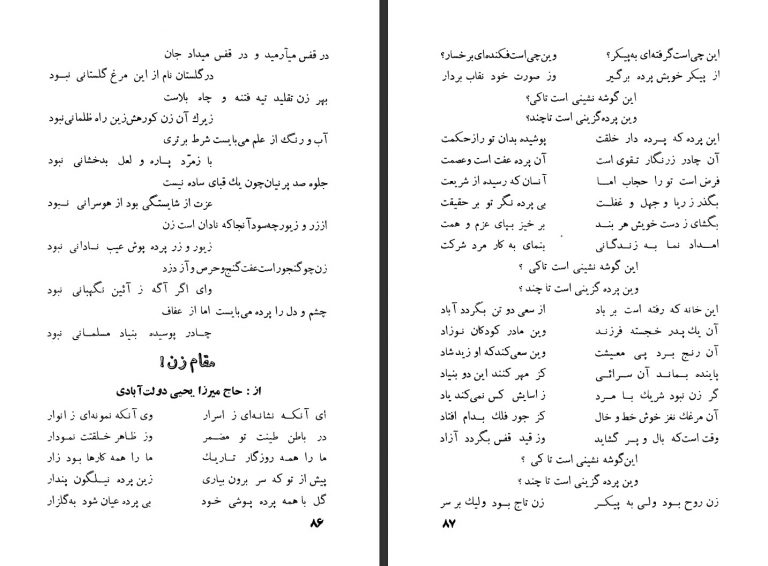 در قفس میآرمید و در قفس میداد جان
در گلستان نام از این مرغ گلستانی نبود
بهر زن تقلید تیه فتنه و چاه بلاست
زیرك آن زن کورهش زین راه ظلمانی نبود
آب و رنگ از علم می‌بایست شرط برتری
با زمرّد پاره و لعل بدخشانی نبود
جلوه صد پرنیان چون یك قبای ساده نیست
عزت از شایستگی بود از هوسرانی نبود
از زر و زیور چه سود آنجا که نادان است زن
زیور و زر پرده پوش عیب نادانی نبود
زن چو گنجور است عفت گنج و حرص و آز دزد
وای اگر آگه ز آئین نگهبانی نبود
چشم و دل را پرده می‌بایست اما از عفاف
چادر پوسیده بنیاد مسلمانی نبود
مقام زن!
از : حاج میرزا یحیی دولت‌آبادی
ای آنکه نشانه‌ای ز اسرار وی آنکه نمونه‌ای ز انوار
در باطن طینت تو مضمر وز ظاهر خلقتت نمودار
ما را همه روزگار تاریك ما را همه کارها بود زار
پیش از تو که سر برون بیاری زین پرده نیلگون پندار
گل با همه پرده پوشی خود بی پرده عیان شود به‌گلزار
۸۶
این چی است گرفته‌ای به‌پیکر؟ وین چی است فکنده‌ای برخسار؟
از پیکر خویش پرده برگیر وز صورت خود نقاب بردار
این گوشه نشینی است تاکی؟
وین پرده گزینی است تاچند؟
این پرده که پرده دار خلقت پوشیده بدان تو را زحکمت
آن چادر زرنگار تقوی است آن پرده عفت است وعصمت
فرض است تو را حجاب اما آنسان که رسیده از شریعت
بگذر ز ریا و جهل و غفلت بی پرده نگر تو بر حقیقت
بگشای ز دست خویش هر بند بر خیز بپای عزم و همت
امداد نما به زندگانی بنمای به کار مرد شرکت
این گوشه نشینی است تاکی ؟
وین پرده گزینی است تا چند ؟
این خانه که رفته است بر باد از سعی دو تن بگردد آباد
آن یك پدر خجسته فرزند وین مادر کودکان نوزاد
آن رنج برد پی معیشت وین سعی کند که او زید شاد
پاینده بماند آن سرائی کز مهر کنند این دو بنیاد
گر زن نبود شریك با مرد ز اسایش کس نمی‌کند یاد
آن مرغك نغز خوش خط و خال کز جور فلك بدام افتاد
وقت است که بال و پر گشاید وز قید قفس بگردد آزاد
این گوشه نشینی است تا کی ؟
وین پرده گزینی است تا چند ؟
زن روح بود ولی به پیکر زن تاج بود ولیك بر سر
۸۷